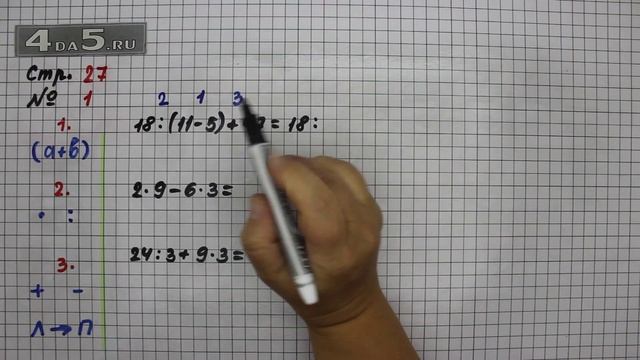 4DA5.RU
Стр. 27
№ 1
2 1 3
1. 18:(11-5)+ = 18:
(а+в)
2. 2·9-6·3=
· :
3. 24:3+9·3=
+ -
Л→П